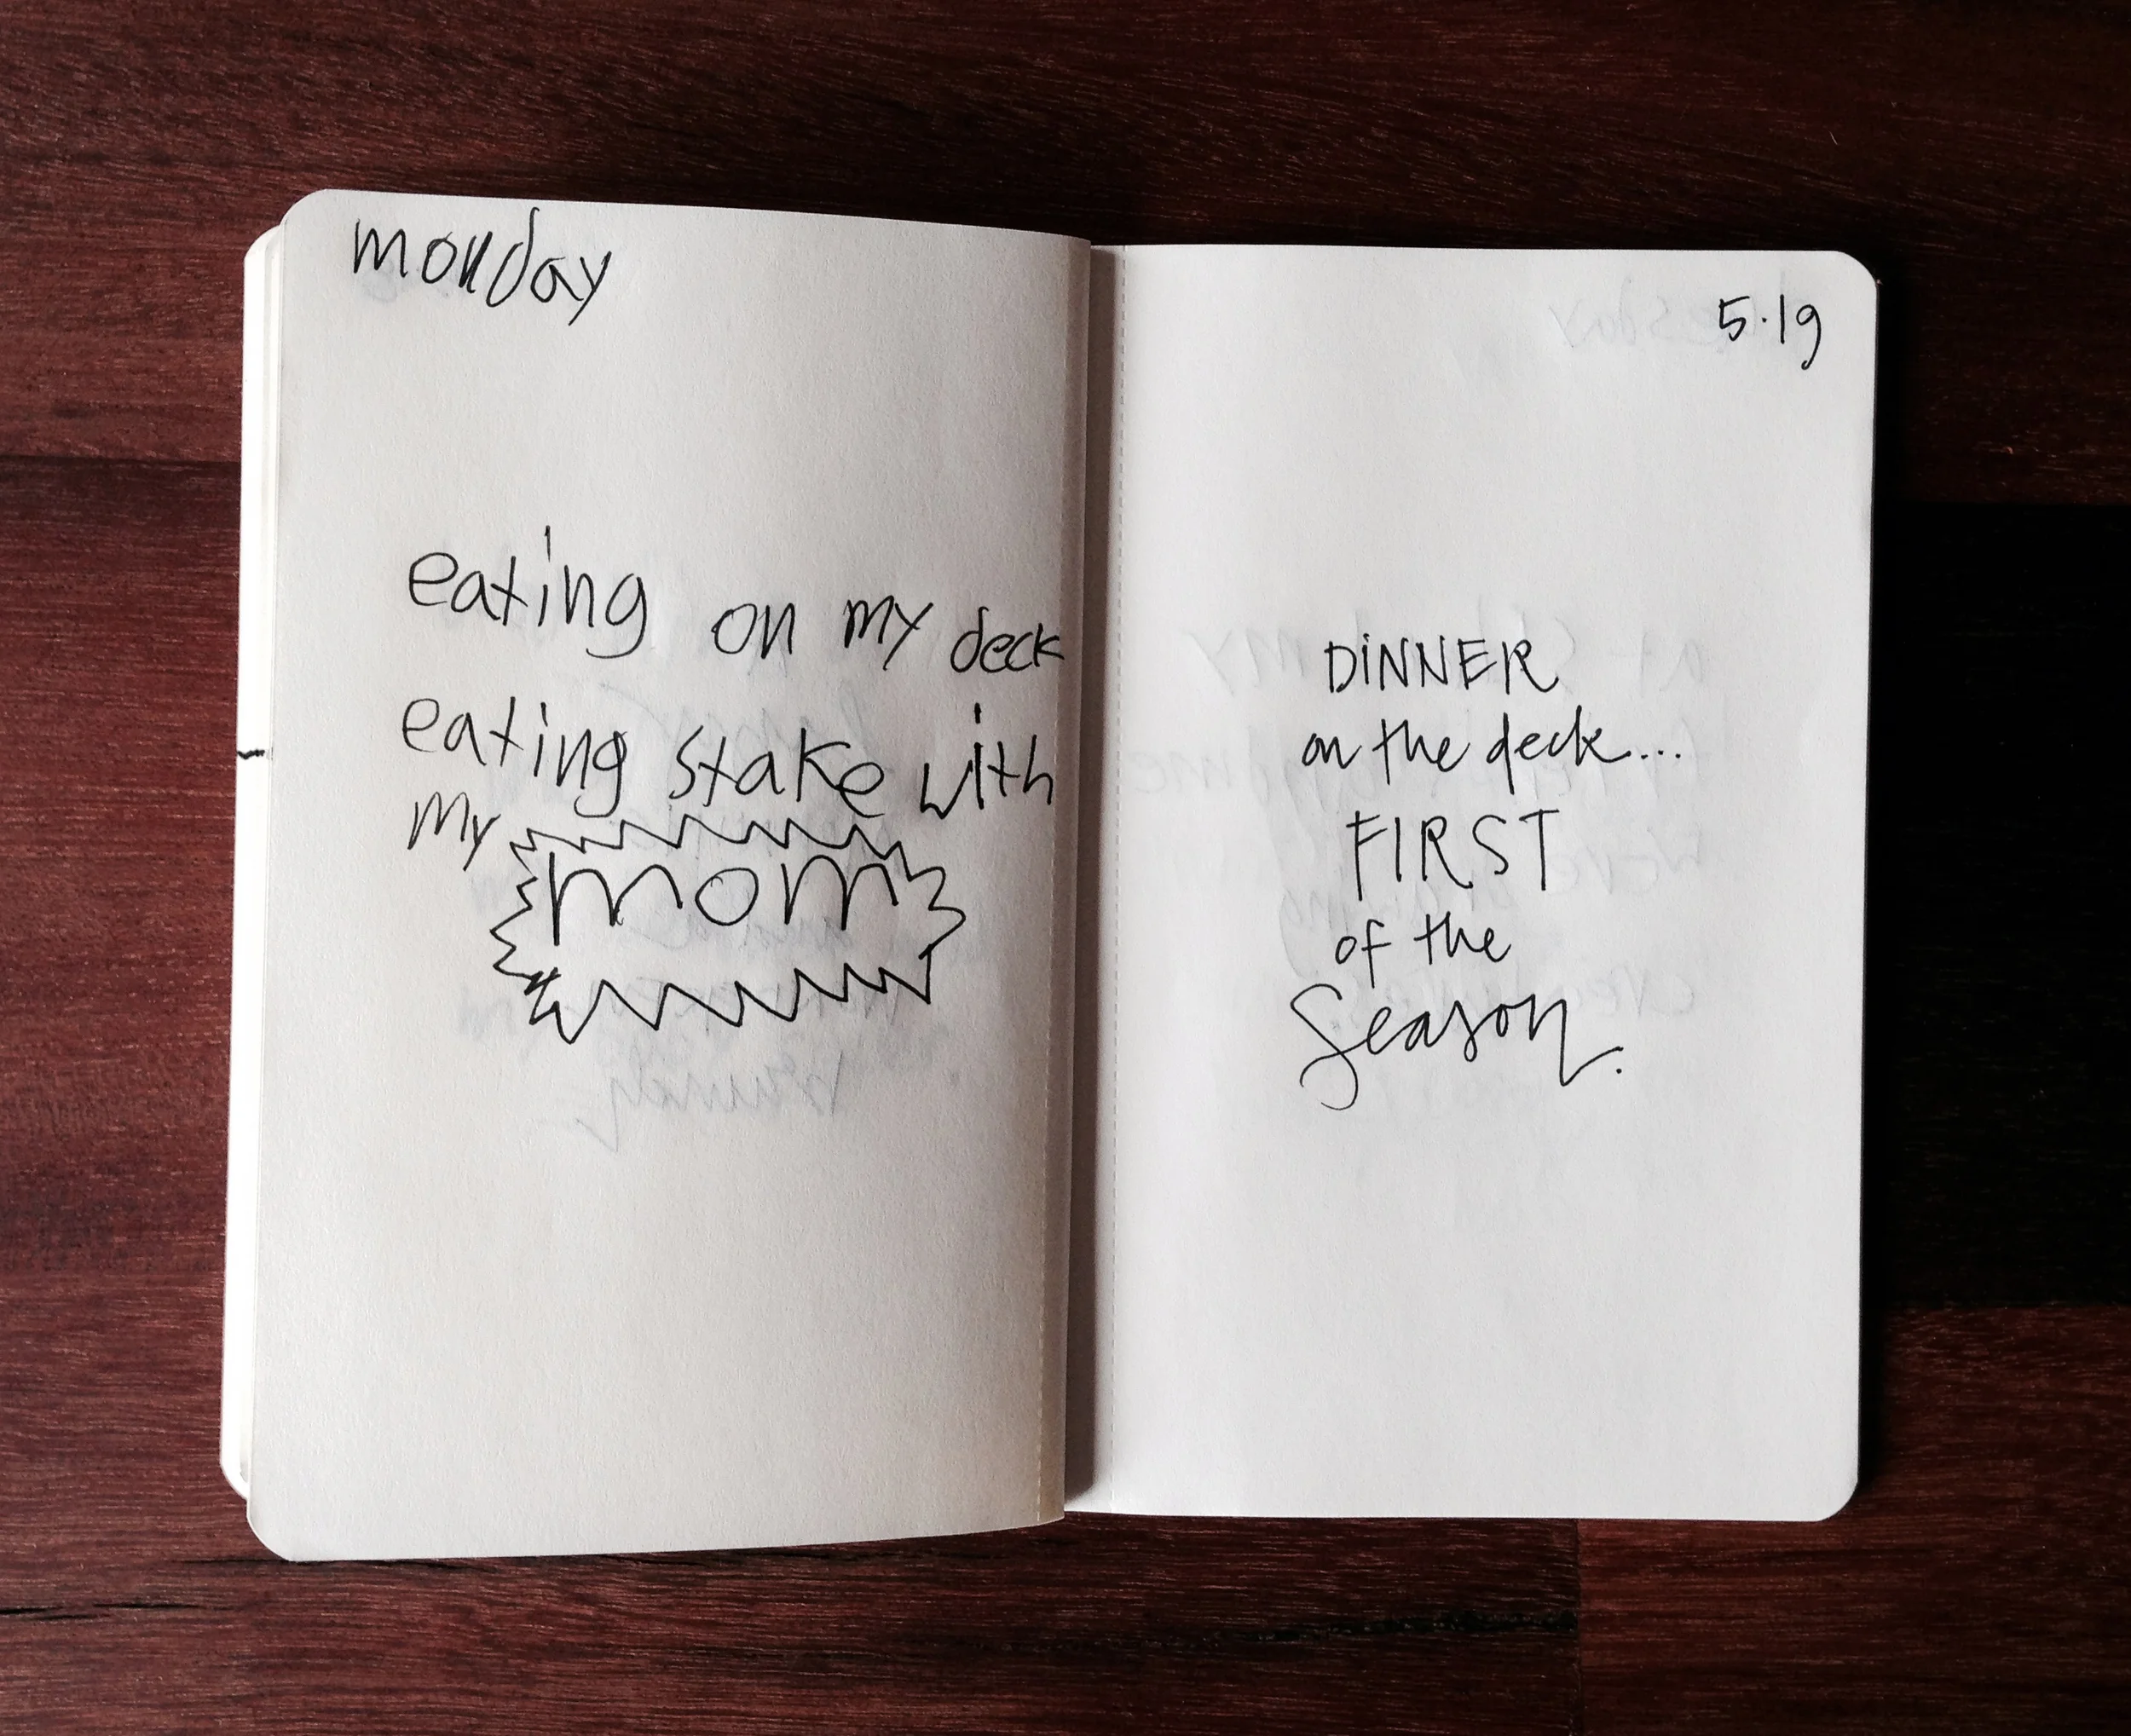 monday
eating on my deck
eating stake with
my mom
5.19
DINNER
on the deck...
FIRST
of the
Season.